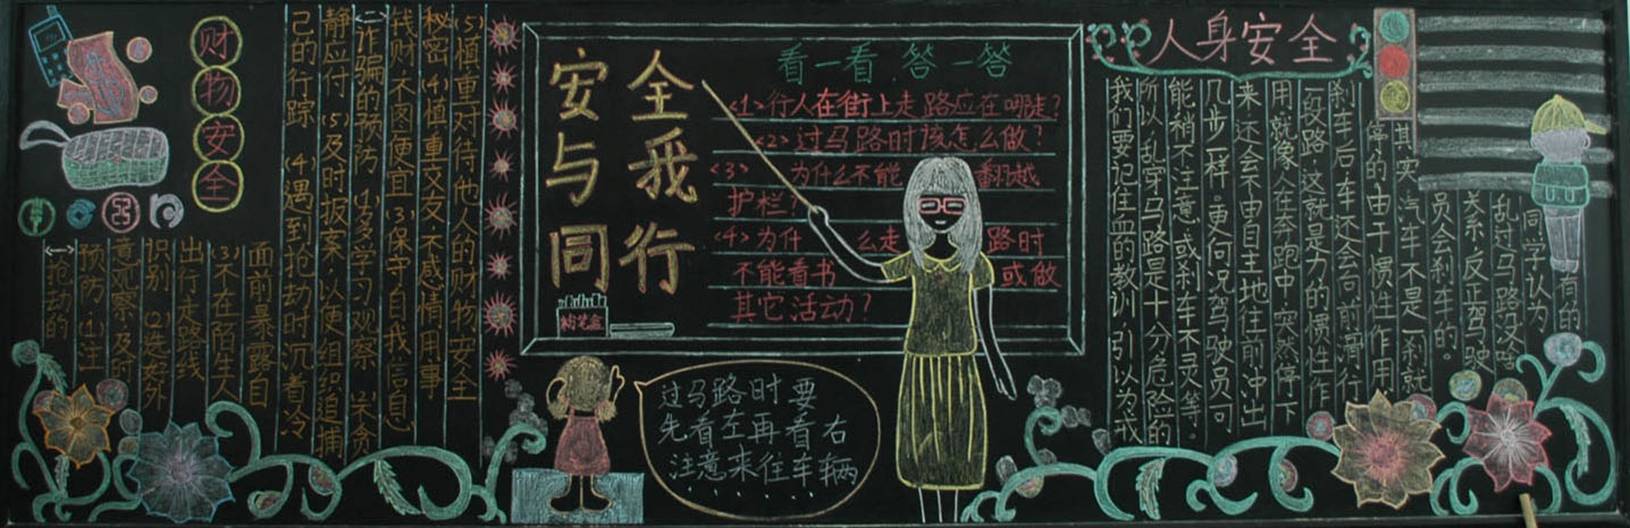 财物安全
<一>抢劫的
预防:(1)注
意观察,及时
识别 (2)选好外
出行走路线
(3)不在陌生人
面前暴露自
己的行踪 (4)遇到抢劫时沉着冷
静应付 (5)及时报案,以便组织追捕
<二>诈骗的预防 (1)多学习观察 (2)不贪
钱财不图便宜 (3)保守自我信息
秘密 (4)慎重交友,不感情用事
(5)慎重对待他人的财物安全
安全
与我
同行
看一看 答一答
<1>行人在街上走路应在哪走?
<2>过马路时该怎么做?
<3>为什么不能翻越
护栏?
<4>为什么走路时
不能看书或做
其它活动?
粉笔盒
过马路时要
先看左再看右
注意来往车辆
人身安全
有的
同学认为
乱过马路没啥
关系,反正驾驶
员会刹车的。
其实,汽车不是一刹就
停的,由于惯性作用
刹车后,车还会向前滑行
一段路,这就是力的惯性作
用,就像人在奔跑中突然停下
来,还会不由自主地往前冲出
几步一样。更何况驾驶员可
能稍不注意,或刹车不灵等。
所以,乱穿马路是十分危险的
我们要记住血的教训,引以为戒